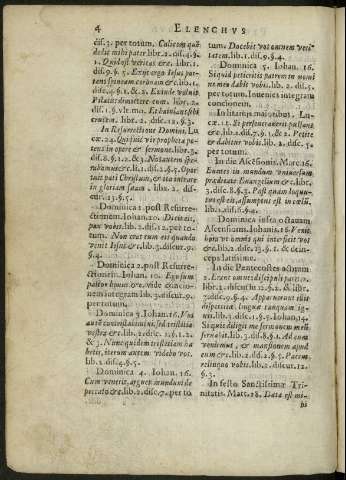 4
ELENCHVS
dis. 3. per totum. Calicem quē
dedit mihi pater lib. 2. disc. 4. §.
1. Quid est veritas &c. lib. 1.
dis. 9. §. 5. Exijt ergo Iesus por-
tans spineam coronam &c lib. 1.
disc. 4. §. 1. & 2. Exinde voluit
Pilatus dimittere eum. lib. 2.
dis. 1. §. vlt. mo. Et baiulans sibi
crucem. lib. 2. disc. 13. §. 2.
In Resurrectione Domini, Lu-
cæ. 24. Qui fuit vir propheta po-
tens in opere & sermone. lib. 3.
dis. 8. §. 1. 2. & 3. Nos autem spe-
rabamus &c. li. 2. dis. 7. §. 5. Opor-
tuit pati Christum, & ita intrare
in gloriam suam. lib. 2. dis-
cur. 13. §. 5.
Dominica 1. post Resurre-
ctionem. Iohan. 20. Dicit eis,
pax vobis. lib. 2. dis. 12. per to-
tum. Non erat cum eis quando
venit Iesus & c. lib. 2. discur. 9.
§. 4.
Dominica 2. post Resurre-
ctionem. Iohan. 10. Ego sum
pastor bonus &c. vide concio-
nem integram lib. 3. discur. 9.
per totum.
Dominica 3. Iohan. 16. Vos
autē contristabimini, sed tristitia
vestra &c. lib. 2. disc. 12. §. 1. 2.
& 3. Nunc quidem tristitiam ha-
betis, iterum autem videbo vos.
lib. 2. disc. 4. §. 5.
Dominica 4. Iohan. 16.
Cum venerit, arguet mundum de
peccato & c. lib. 2. disc. 7. per to
tum. Docebit vos omnem veri-
tatem. lib. 1. dis. 9. §. 4.
Dominica 5. Iohan. 16.
Si quid petieritis patrem in nomi
ne meo dabit vobis. lib. 2. dis. 5.
per totum. Inuenies integram
concionem.
In litanijs maioribus. Lu-
cæ. 11. Et perseuerauerit pulsans
&c. lib. 2. dis. 7. §. 1. & 2. Petite
& dabitur vobis. lib. 2. disc. 5.
per totum.
In die Ascēsionis. Marc. 16.
Euntes in mundum vniuersum
prædicate Euangelium &c. lib.
3. disc. 8. §. 3. Post quam loquu-
tus est eis, assumptus est in cœlū.
lib. 1. dis. 8. §. 4.
Dominica infra octauam
Ascensionis. Iohanis. 16.
vobis vt omnis qui interficit vos
&c. lib. 2. disc. 13. §. 1. &
In die Pentecostes
lib.
Si quis diligit me sermonem meū
seruabit. lib. 1. dis. 8. §. 1. Ad eum
veniemus, & mansionem apud
eum & c. lib. 2. dis. 2. §. 5. Pacem
relinquo vobis. lib. 2. discur. 12.
§. 3.
In festo Sanctissimæ Tri-
nitatis. Matt. 28. Data est mi-
hi